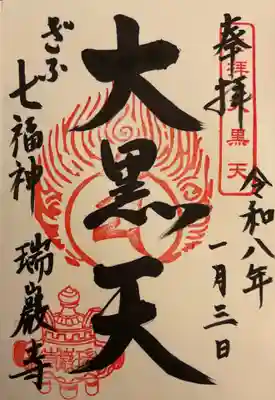 奉拝
拝
黒天
令和八年
一月三日
大黒天
ぎふ
七福神
瑞巖寺